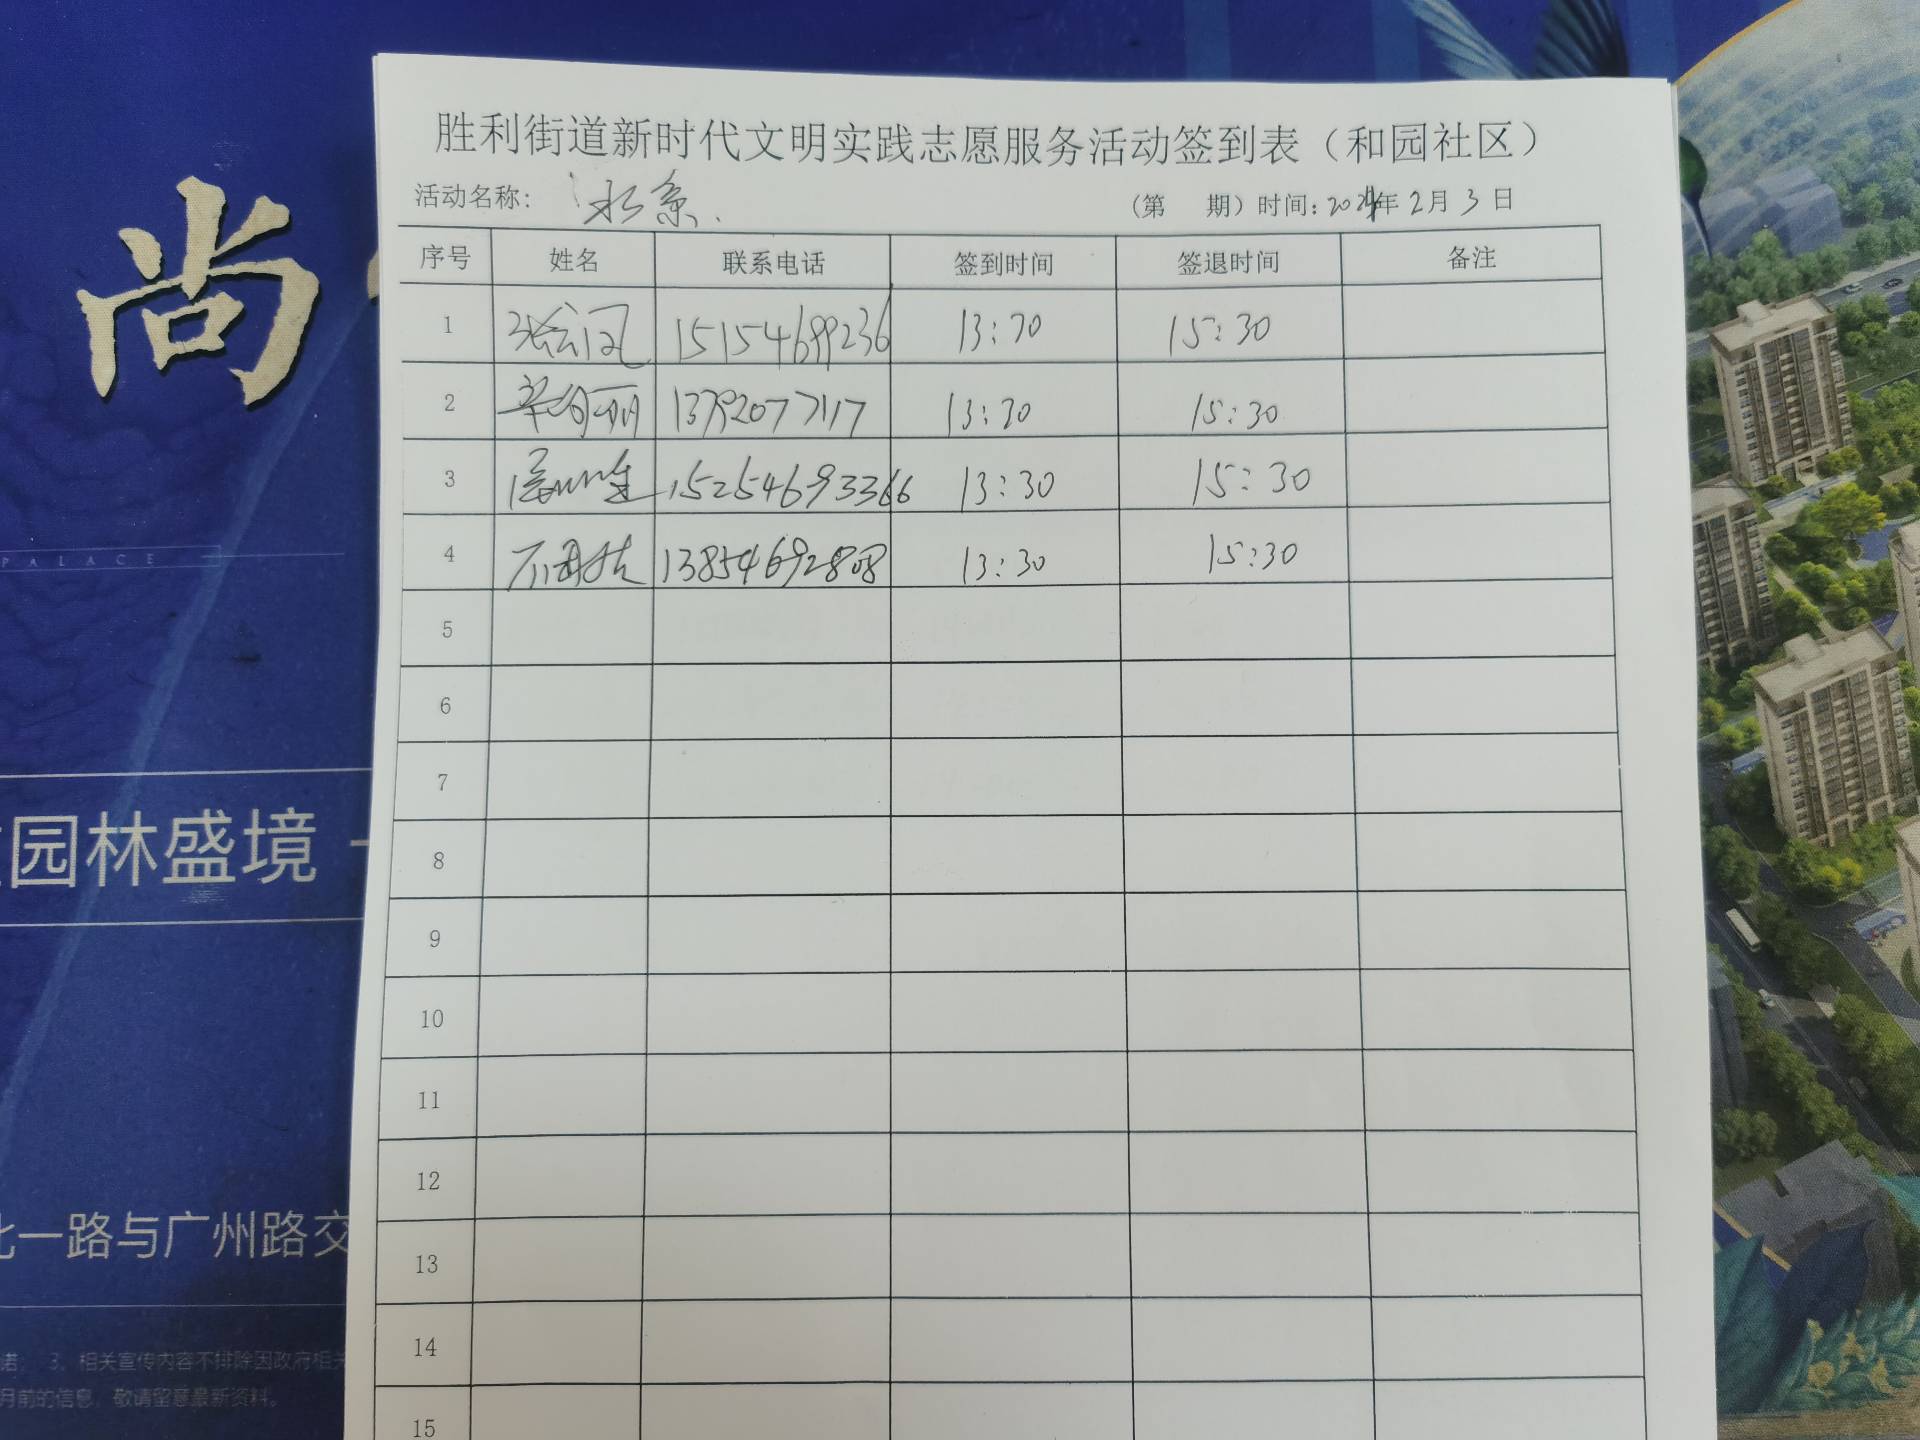 胜利街道新时代文明实践志愿服务活动签到表（和园社区）
活动名称:
（第 期）时间:2024年2月3日
序号 姓名 联系电话 签到时间 签退时间 备注
1 15154689236 13:30 15:30
2 13792077117 13:30 15:30
3 15254693366 13:30 15:30
4 13854692808 13:30 15:30
5
6
7
8
9
10
11
12
13
14
15
尚
PALACE
园林盛境
北一路与广州路交
诺; 3、相关宣传内容不排除因政府相关
月前的信息，敬请留意最新资料。